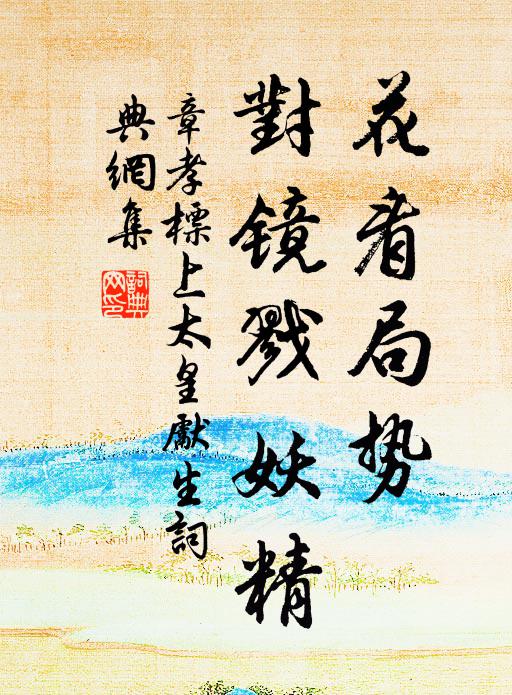 花看局势
對镜戮妖精
章孝標上太皇獻生詞
典網集
詞典网印